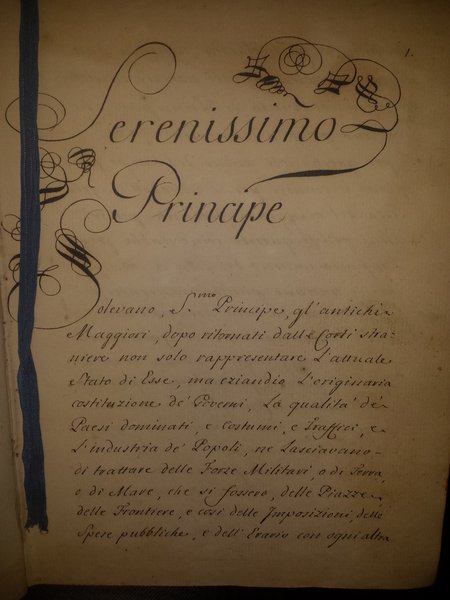 1.
Serenissimo
Principe
Solevano, S.mo Principe, gl'antichi
Maggiori, dopo ritornati dalle Corti stra-
niere non solo rappresentare L'attuale
Stato di Esse, ma eziandio L'originaria
costituzione de' Governi, La qualità de'
Paesi dominati, e Costumi, e Traffici, e
L'industria de' Popoli, ne Lasciavano
di trattare delle Forze Militari, o di Terra,
o di Mare, che si fossero, delle Piazze
delle Frontiere, e così delle Imposizioni, delle
Spese pubbliche, e dell'Erario con ogni altra